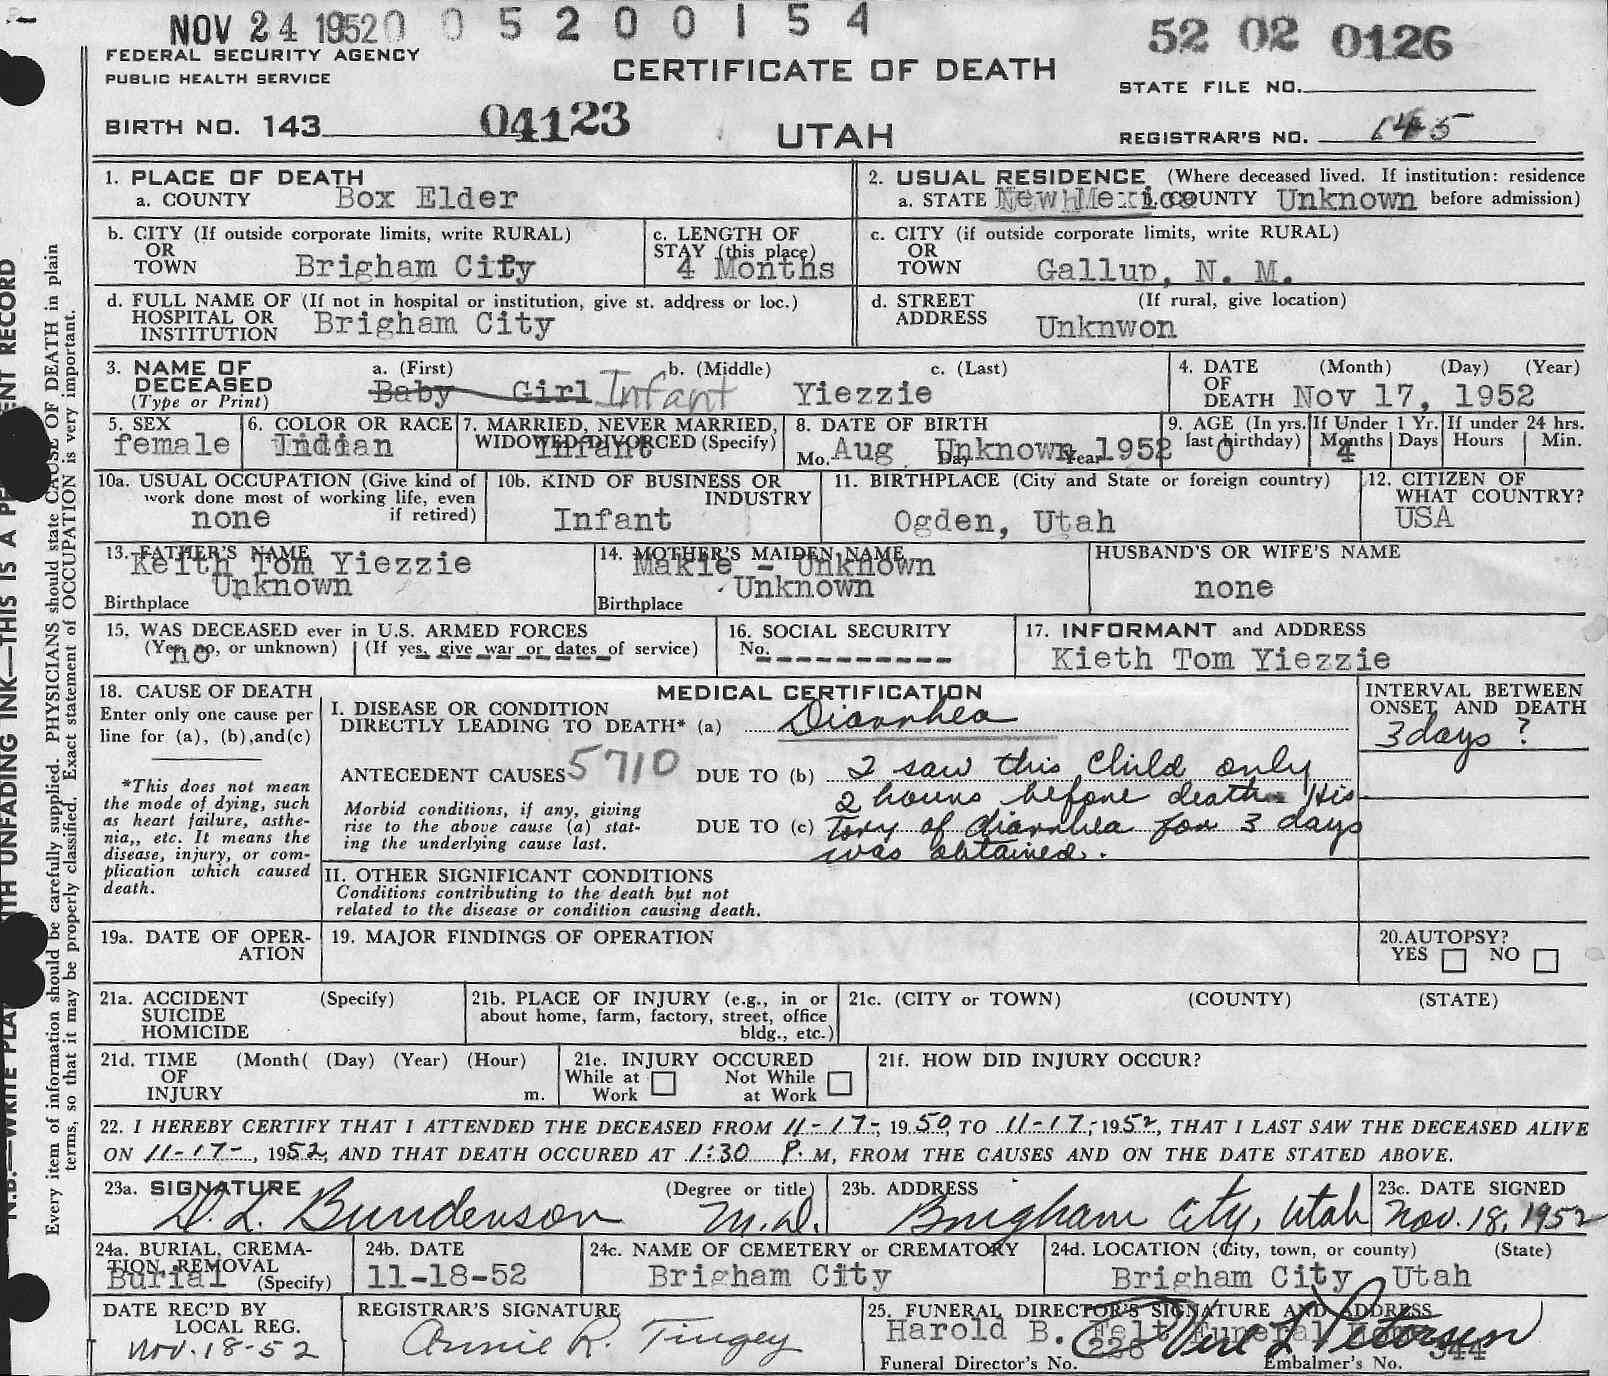 NOV 24 1952 0 0 5 2 0 0 1 5 4
52 02 0126
FEDERAL SECURITY AGENCY
PUBLIC HEALTH SERVICE
CERTIFICATE OF DEATH
STATE FILE NO.
BIRTH NO. 143 04123
UTAH
REGISTRAR'S NO. 145
1. PLACE OF DEATH
a. COUNTY Box Elder
2. USUAL RESIDENCE (Where deceased lived. If institution: residence
a. STATE New Mexico COUNTY Unknown before admission)
b. CITY (If outside corporate limits, write RURAL)
OR
TOWN Brigham City
c. LENGTH OF
STAY (this place)
4 Months
c. CITY (if outside corporate limits, write RURAL)
OR
TOWN Gallup, N. M.
d. FULL NAME OF (If not in hospital or institution, give st. address or loc.)
HOSPITAL OR
INSTITUTION Brigham City
d. STREET (If rural, give location)
ADDRESS Unknwon
3. NAME OF a. (First) b. (Middle) c. (Last)
DECEASED Baby Girl Infant Yiezzie
(Type or Print)
4. DATE (Month) (Day) (Year)
OF
DEATH Nov 17, 1952
5. SEX
female
6. COLOR OR RACE
Indian
7. MARRIED, NEVER MARRIED,
WIDOWED/DIVORCED (Specify)
Infant
8. DATE OF BIRTH
Mo. Aug Day Unknown Year 1952
9. AGE (In yrs. If Under 1 Yr. If under 24 hrs.
last birthday) Months Days Hours Min.
0 4
10a. USUAL OCCUPATION (Give kind of
work done most of working life, even
none if retired)
10b. KIND OF BUSINESS OR
INDUSTRY
Infant
11. BIRTHPLACE (City and State or foreign country)
Ogden, Utah
12. CITIZEN OF
WHAT COUNTRY?
USA
13. FATHER'S NAME
Keith Tom Yiezzie
Unknown
Birthplace
14. MOTHER'S MAIDEN NAME
Makie - Unknown
Unknown
Birthplace
HUSBAND'S OR WIFE'S NAME
none
15. WAS DECEASED ever in U.S. ARMED FORCES
(Yes, no, or unknown) (If yes, give war or dates of service)
no
16. SOCIAL SECURITY
No.
17. INFORMANT and ADDRESS
Kieth Tom Yiezzie
18. CAUSE OF DEATH
Enter only one cause per
line for (a), (b),and(c)
*This does not mean
the mode of dying, such
as heart failure, asthe-
nia,, etc. It means the
disease, injury, or com-
plication which caused
death.
MEDICAL CERTIFICATION
I. DISEASE OR CONDITION
DIRECTLY LEADING TO DEATH* (a) Diarrhea
ANTECEDENT CAUSES 5710 DUE TO (b) I saw this child only
2 hours before death. His
Morbid conditions, if any, giving
rise to the above cause (a) stat-
ing the underlying cause last.
DUE TO (c) tory of diarrhea for 3 days
was obtained.
II. OTHER SIGNIFICANT CONDITIONS
Conditions contributing to the death but not
related to the disease or condition causing death.
INTERVAL BETWEEN
ONSET AND DEATH
3 days ?
19a. DATE OF OPER-
ATION
19. MAJOR FINDINGS OF OPERATION
20. AUTOPSY?
YES NO
21a. ACCIDENT (Specify)
SUICIDE
HOMICIDE
21b. PLACE OF INJURY (e.g., in or
about home, farm, factory, street, office
bldg., etc.)
21c. (CITY or TOWN) (COUNTY) (STATE)
21d. TIME (Month( (Day) (Year) (Hour)
OF
INJURY m.
21e. INJURY OCCURED
While at Work Not While at Work
21f. HOW DID INJURY OCCUR?
22. I HEREBY CERTIFY THAT I ATTENDED THE DECEASED FROM 11-17-, 1950, TO 11-17-, 1952, THAT I LAST SAW THE DECEASED ALIVE
ON 11-17-, 1952, AND THAT DEATH OCCURED AT 1:30 P. M, FROM THE CAUSES AND ON THE DATE STATED ABOVE.
23a. SIGNATURE (Degree or title)
D. L. Bunderson M.D.
23b. ADDRESS
Brigham City, Utah
23c. DATE SIGNED
Nov. 18, 1952
24a. BURIAL, CREMA-
TION, REMOVAL
Burial (Specify)
24b. DATE
11-18-52
24c. NAME OF CEMETERY or CREMATORY
Brigham City
24d. LOCATION (City, town, or county) (State)
Brigham City Utah
DATE REC'D BY
LOCAL REG.
Nov. 18-52
REGISTRAR'S SIGNATURE
Annie R. Tingey
25. FUNERAL DIRECTOR'S SIGNATURE AND ADDRESS
Harold B. Felt Funeral
Vere L Petersen
Funeral Director's No. 228 Embalmer's No. 344
Every item of information should be carefully supplied. PHYSICIANS should state CAUSE OF DEATH in plain
terms, so that it may be properly classified. Exact statement of OCCUPATION is very important.